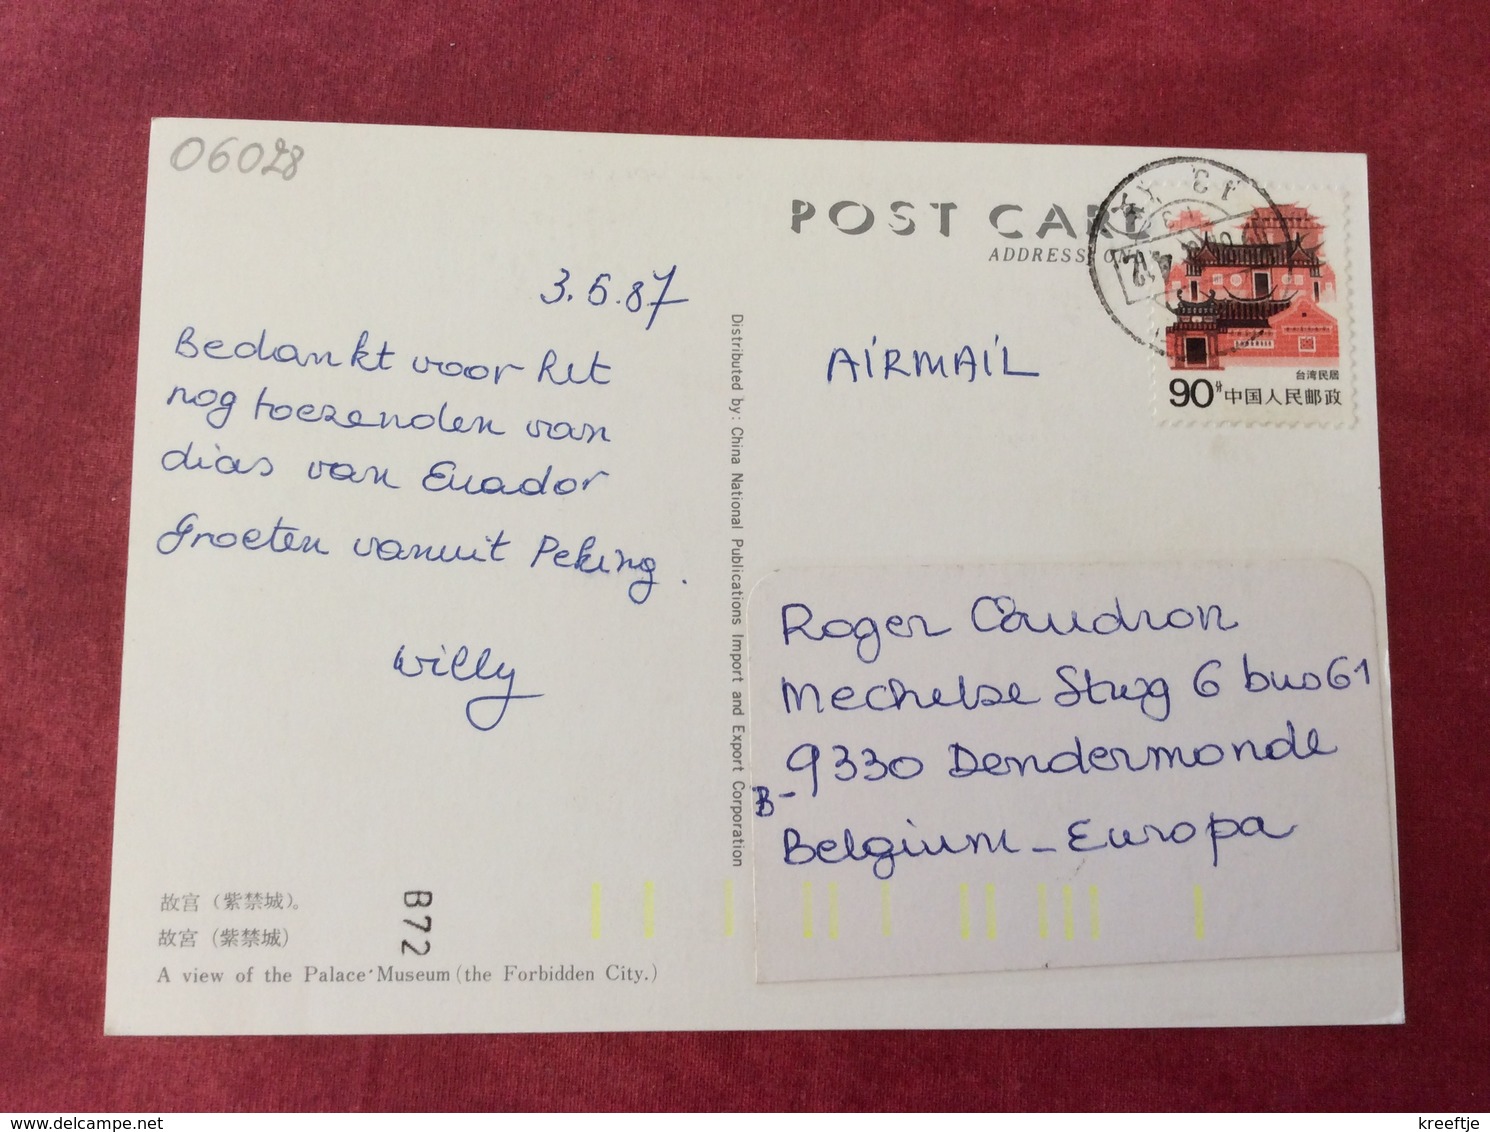 06028
POST CARD
ADDRESS ON
3.6.87
Bedankt voor het
nog toezenden van
dias van Euador
Groeten vanuit Peking.
Willy
AIRMAIL
台湾民居
90分中国人民邮政
Distributed by: China National Publications Import and Export Corporation
Roger Caudron
Mechelse Stwg 6 bus 61
B-9330 Dendermonde
Belgium - Europa
故宫（紫禁城）。
故宮（紫禁城）
A view of the Palace Museum (the Forbidden City.)
B72
www.delcampe.net
kreeftje